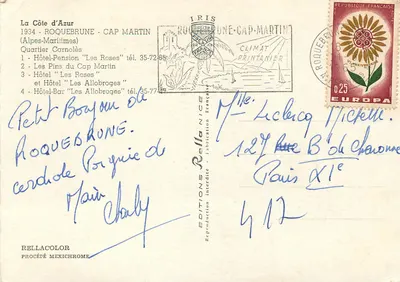 La Côte d'Azur
1934 - ROQUEBRUNE - CAP MARTIN
(Alpes-Maritimes)
Quartier Carnolès
1 - Hôtel-Pension "Les Roses" tél. 35-72
2 - Les Pins du Cap Martin
3 - Hôtel "Les Roses"
et Hôtel "Les Allobroges"
4 - Hôtel-Bar "Les Allobroges" tél. 35-77
Petit Bonjour de
ROQUEBRUNE.
cordiale Poignée de
Main
Charly
RELLACOLOR
PROCÉDÉ MEXICHROME
IRIS
EDITIONS Rella NICE
Reproduction Interdite Fabrication Française
ROQUEBRUNE-CAP-MARTIN
CLIMAT
PRINTANIER
ROQUEBRUNE
REPUBLIQUE FRANÇAISE
POSTES
0,25
EUROPA
Mlle. Leclercq Michelle
127 Bd de Charonne
Paris XIe
417